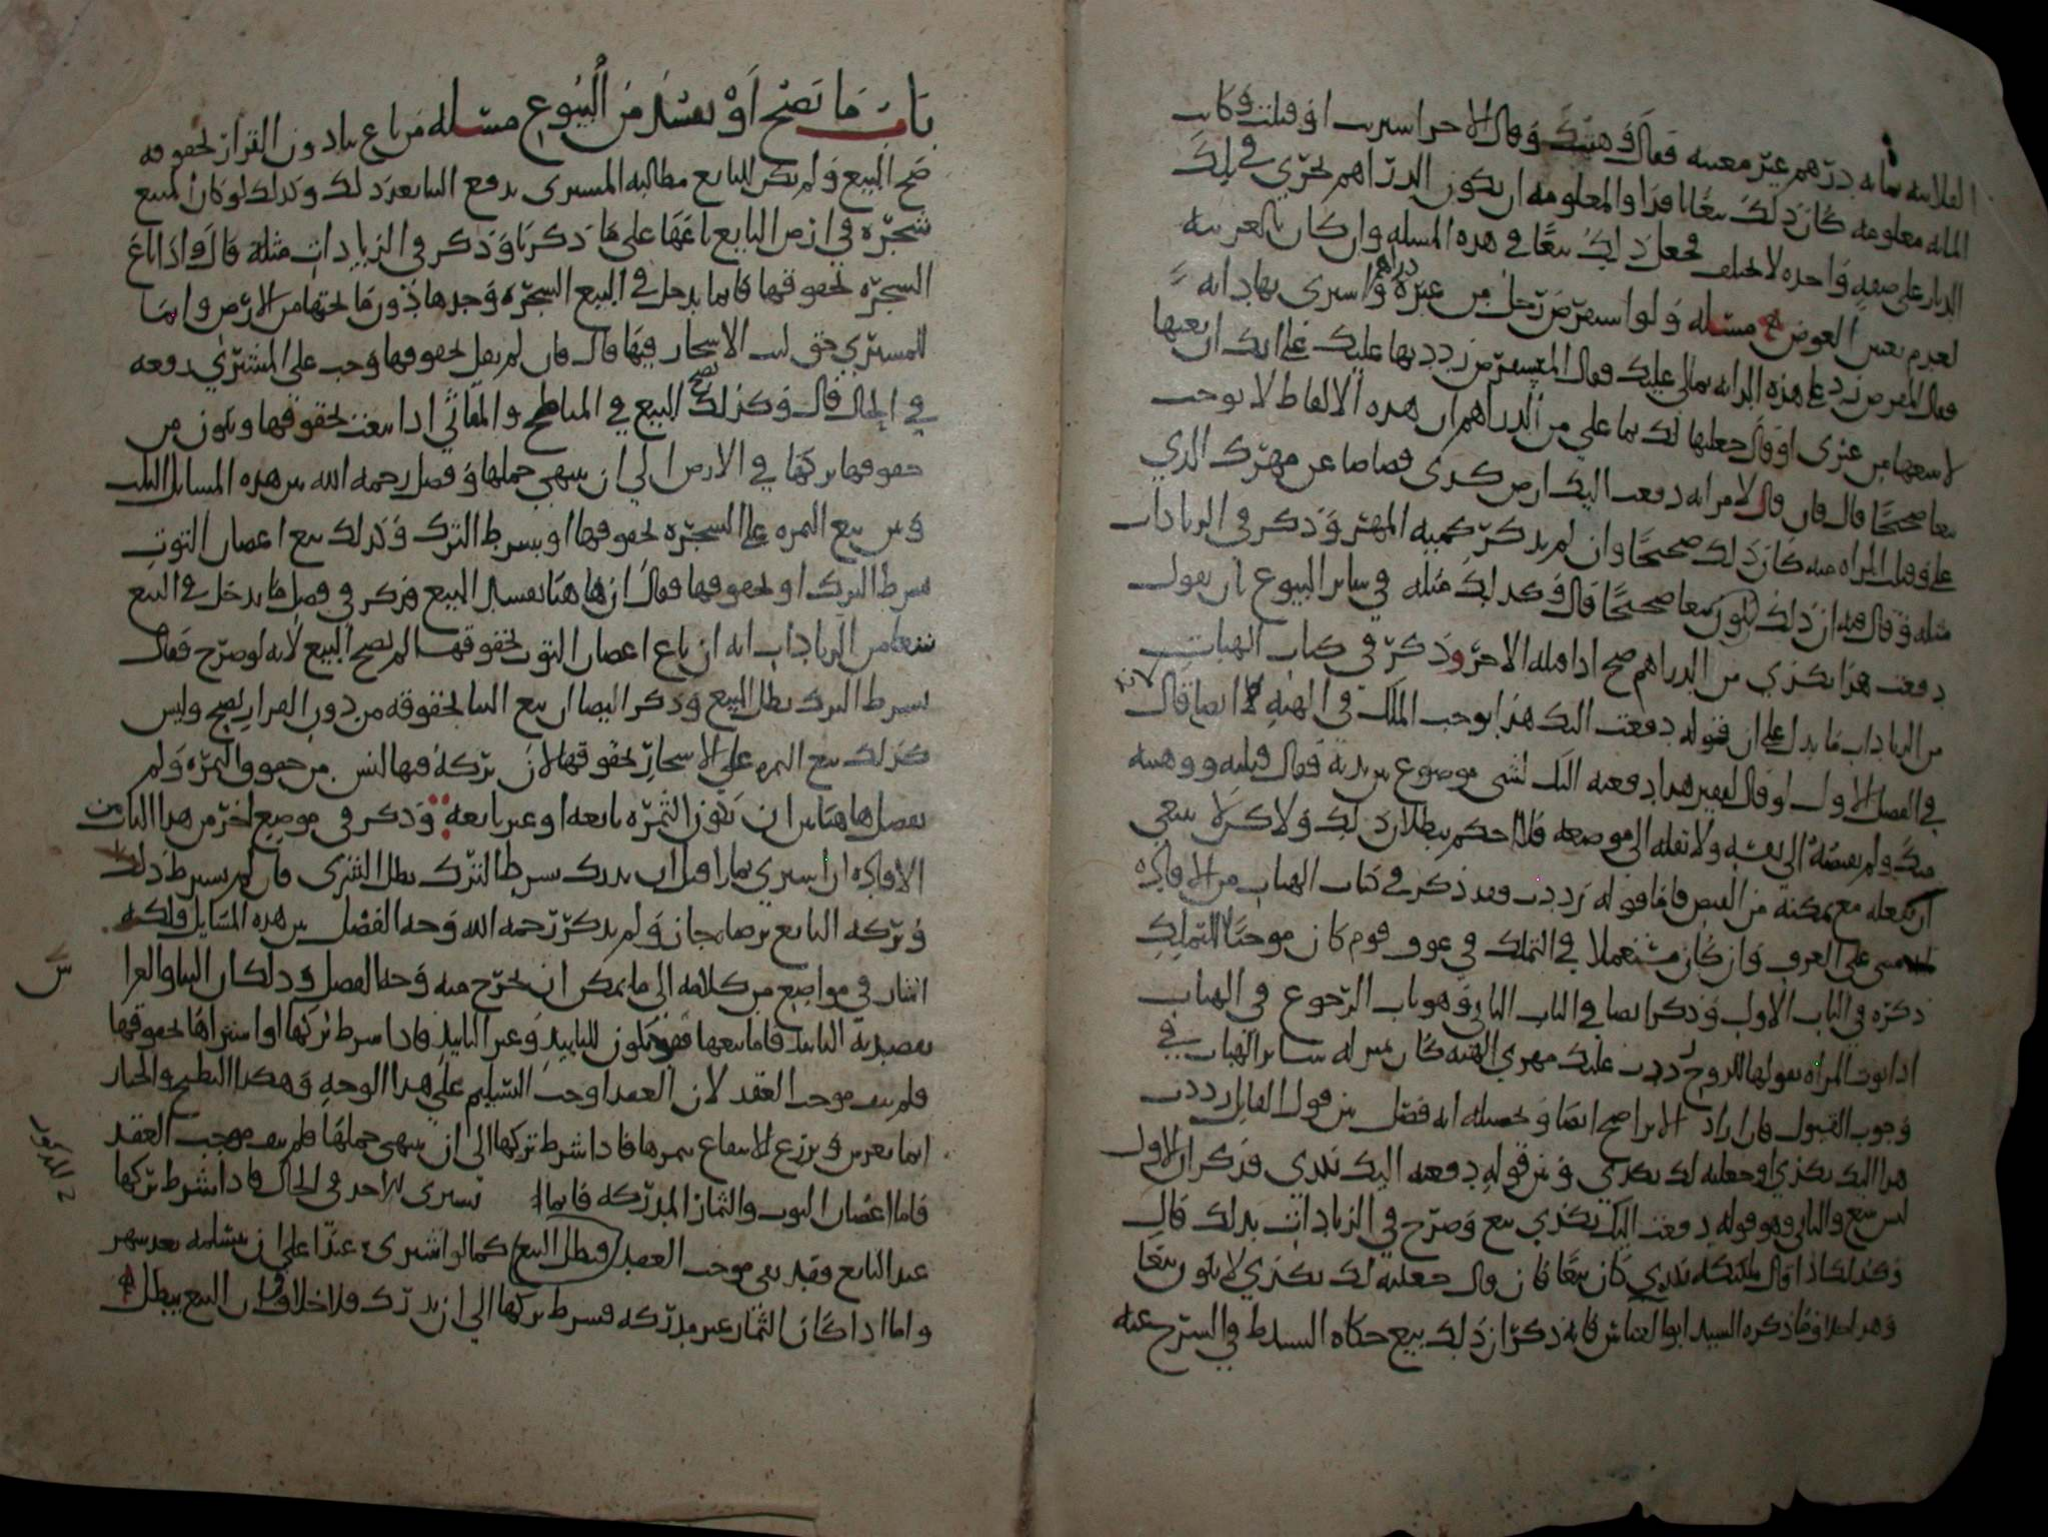 الفلانيه بمايه درهم غير معينه فقال وهبتك وقال الاخر اشتريت او قبلت وكانت
المايه معلومه كان ذلك بيعا نافدا والمعلومه ان يكون الدراهم تجري في تلك
الديار على صفه واحده لا تختلف فجعل ذلك بيعا في هذه المسله وان كان بالعربيه
لعدم تعيين العوض مسله ولو استقرض رجل من غيره دراهم واشترى بها دابه
فقال المقرض رد علي هذه الدابه بمالي عليك فقال المستقرض رددتها عليك على انك ان بعتها
لا تبيعها من غيري او قال جعلتها لك بما علي من الدراهم ان هذه الالفاظ لا توجب
بيعا صحيحا قال فان قال لامراته دفعت اليك ارض كذى قصاصا عن مهرك الذي
علي وقبلت المراه منه كان ذلك صحيحا وان لم يذكر كميه المهر وذكر في الزيادات
مثله وقال فيه ان ذلك يكون بيعا صحيحا قال وكذلك مثله في ساير البيوع بان يقول
دفعت هذا بكذي من الدراهم صح اذا قبله الاخر وذكر في كتاب الهبات
من الزيادات ما يدل على ان قوله دفعت اليك هذا يوجب الملك في الهبه لانه ايضا قال
في الفصل الاول لو قال لفقير هذا دفعته اليك لشي موضوع بين يديه فقال قبلته ووهبته
منك ولم يقبضه الى نفسه ولا نقله الى موضعه فلا احكم ببطلان ذلك ولاكن لا ينبغي
ان يفعله مع تمكنه من القبض فاما قوله رددت فقد ذكر في كتاب الهبات من الافاده
مبني على العرف وان كان مستعملا في التملك في عرف قوم كان موجبا للتمليك
ذكره في الباب الاول وذكر ايضا في الباب الثاني وهو باب الرجوع في الهبات
اذا نوت المراه بقولها للزوج رددت عليك مهري الهبه كان بمنزله ساير الهبات في
وجوب القبول فان اراد الابرا صح ايضا وتحصيله انه فصل بين قول القايل رددت
هذا اليك بكذي او جعلته لك بكذي وبين قوله دفعته اليك بكذي فذكر ان الاول
ليس ببيع والثاني وهو قوله دفعت اليك بكذي بيع وصرح في الزيادات بذلك قال
وكذلك اذا قال ملكتكه بكذي كان بيعا فان قال جعلته لك بكذي لا يكون بيعا
وهذا خلاف ما ذكره السيد ابو العباس فانه ذكر ان ذلك بيع حكاه السيد ط في الشرح عنه
باب ما يصح او يفسد من البيوع مسله من باع بنا دون القرار بحقوقه
صح البيع ولم يكن للبايع مطالبه المشتري برفع البنا بعد ذلك وكذلك لو كان المبيع
شجره في ارض البايع باعها على ما ذكرنا وذكر في الزيادات مثله قال واذا باع
الشجره بحقوقها فانما يدخل في البيع الشجره وحدها دون ما تحتها من الارض وانما
للمشتري حق لبث الاشجار فيها قال فان لم يقل بحقوقها وجب على المشتري رفعه
في الحال قال وكذلك يصح البيع في المباطخ والمقاثي اذا بيعت بحقوقها ويكون من
حقوقها تركها في الارض الى ان ينتهي حملها وفصل رحمه الله بين هذه المسايل الثلث
وبين بيع الثمره على الشجره بحقوقها او بشرط الترك وكذلك بيع اغصان التوت
بشرط الترك او بحقوقها فقال ان هاهنا يفسد البيع فذكر في فصل ما يدخل في البيع
تبعا من الزيادات انه ان باع اغصان التوت بحقوقها لم يصح البيع لانه لو صرح فقال
بشرط الترك بطل البيع وذكر ايضا ان بيع البنا بحقوقه من دون القرار يصح وليس
كذلك بيع الثمره على الاشجار بحقوقها لان تركه فيها ليس من حقوق الثمره ولم
يفصل هاهنا بين ان تكون الثمره يانعه او غير يانعه وذكر في موضع اخر من هذا الباب من
الافاده ان اشترى ثمارا قبل ان يدرك بشرط الترك بطل الشرى فان لم يشرط ذلك
وتركه البايع برضاه جاز ولم يذكر رحمه الله وجه الفصل بين هذه المسايل ولكنه
اشار في مواضع من كلامه الى ما يمكن ان يخرج منه وجه الفصل وذلك ان البنا والغرا
يقصد به التابيد فاما بيعها فقد يكون للتابيد وغير التابيد فاذا شرط تركها او اشتراها بحقوقها
فلم ينف موجب العقد لان العقد اوجب التسليم على هذا الوجه وهكذا البطيخ والخيار
انما يغرس ويزرع للانتفاع بثمرها فاذا شرط تركها الى ان ينتهي حملها فلم ينف موجب العقد
فاما اغصان التوت والثمار المدركه فانما تشترى للاخذ في الحال فاذا شرط تركها
عند البايع فقد نفى موجب العقد فبطل البيع كما لو اشترى عبدا على ان يسلمه بعد شهر
واما اذا كان الثمار غير مدركه فشرط تركها الى ان يدرك فلا خلاف ان البيع يبطل